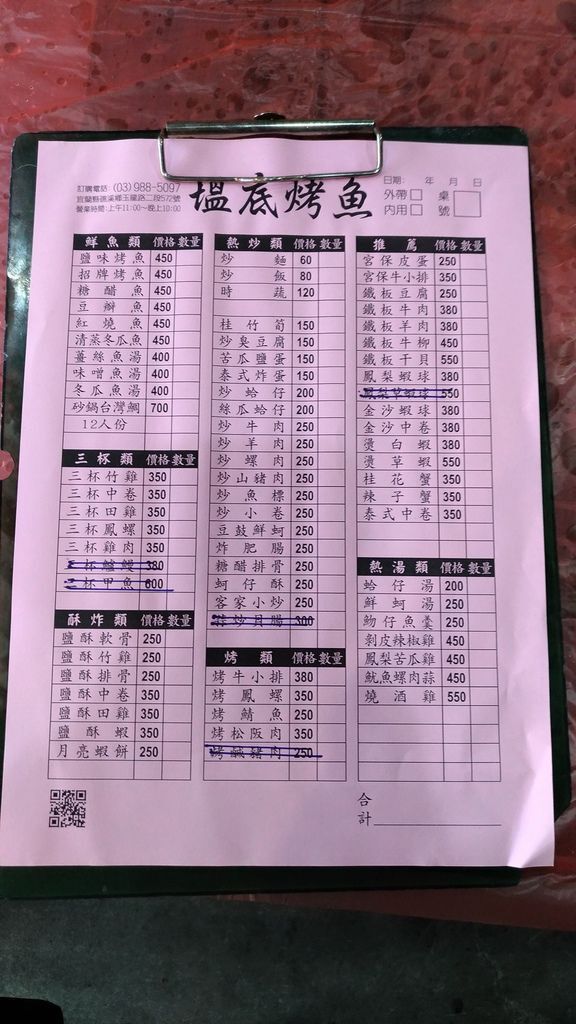 訂購電話: (03)988-5097
宜蘭縣礁溪鄉玉龍路二段572號
營業時間:上午11:00~晚上10:00
塭底烤魚
日期: 年 月 日
外帶□ 桌
內用□ 號
鮮魚類 價格 數量
鹽味烤魚 450
招牌烤魚 450
糖醋魚 450
豆瓣魚 450
紅燒魚 450
清蒸冬瓜魚 450
薑絲魚湯 400
味噌魚湯 400
冬瓜魚湯 400
砂鍋台灣鯛 700
12人份
三杯類 價格 數量
三杯竹雞 350
三杯中卷 350
三杯田雞 350
三杯鳳螺 350
三杯雞肉 350
三杯鱸鰻 380
三杯甲魚 600
酥炸類 價格 數量
鹽酥軟骨 250
鹽酥竹雞 250
鹽酥排骨 250
鹽酥中卷 350
鹽酥田雞 350
鹽酥蝦 350
月亮蝦餅 250
熱炒類 價格 數量
炒麵 60
炒飯 80
時蔬 120
桂竹筍 150
炒臭豆腐 150
苦瓜鹽蛋 150
泰式炸蛋 150
炒蛤仔 200
絲瓜蛤仔 200
炒牛肉 250
炒羊肉 250
炒螺肉 250
炒山豬肉 250
炒魚標 250
炒小卷 250
豆鼓鮮蚵 250
炸肥腸 250
糖醋排骨 250
蚵仔酥 250
客家小炒 250
蒜炒貝腸 300
烤類 價格 數量
烤牛小排 380
烤鳳螺 350
烤鯖魚 250
烤松阪肉 350
烤鹹豬肉 250
推薦 價格 數量
宮保皮蛋 250
宮保牛小排 350
鐵板豆腐 250
鐵板牛肉 380
鐵板羊肉 380
鐵板牛柳 450
鐵板干貝 550
鳳梨蝦球 380
鳳梨草蝦球 550
金沙蝦球 380
金沙中卷 380
燙白蝦 380
燙草蝦 550
桂花蟹 350
辣子蟹 350
泰式中卷 350
熱湯類 價格 數量
蛤仔湯 200
鮮蚵湯 250
魩仔魚羹 250
剝皮辣椒雞 450
鳳梨苦瓜雞 450
魷魚螺肉蒜 450
燒酒雞 550
合
計